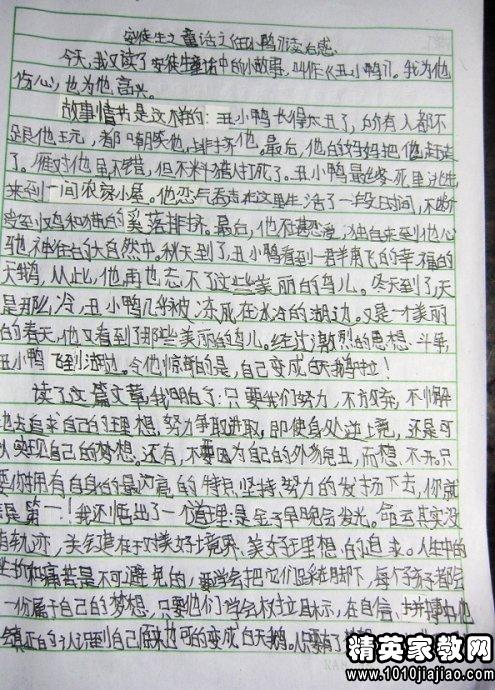 安徒生之童话之《丑小鸭》读后感
今天,我又读了安徒生童话中的小故事,叫作《丑小鸭》。我为他
伤心,也为他高兴。
故事情节是这样的:丑小鸭长得太丑了,所有人都不
跟他玩,都嘲笑他,排挤他。最后,他的妈妈把他赶走
了。雁对他虽不错,但不料猎人打死了。丑小鸭最终死里逃生
来到一间农家小屋。他忍气吞声在这里生活了一段日子,不断
受到小鸡和猫的奚落排挤。最后,他不堪忍受,独自来到他心
驰神往的大自然中。秋天到了,丑小鸭看到一群展翅飞的幸福的
天鹅,从此,他再也忘不了这些美丽的鸟儿。冬天到了,天
是那么冷,丑小鸭几乎被冻死在冰冷的湖边。又是一个美丽
的春天,他又看到了那些美丽的鸟儿。经过激烈的思想斗争,
丑小鸭飞到湖边。令他惊讶的是,自己变成白天鹅啦!
读了这篇文章,我明白了:只要我们努力,不放弃,不懈
地去追求自己的理想,努力争取进取,即使身处逆境,还是可
以实现自己的梦想。还有,不要因为自己的外貌丑,而想不开,只
要你拥有自身的最闪亮的特点,坚持努力的发扬下去,你就
是第一!我还悟出了一个道理:是金子早晚会发光。命运其实没
有轨迹,关键在于对美好境界、美好理想的追求。人生中的
挫折和痛苦是不可避免的,要学会把它们踩在脚下,每个孩子都会
一份属于自己的梦想,只要他们学会树立目标,在自信、拼搏中他
会真正的认识到自己原来也可以变成白天鹅。只要有
精英家教网
www.1010jiajiao.com